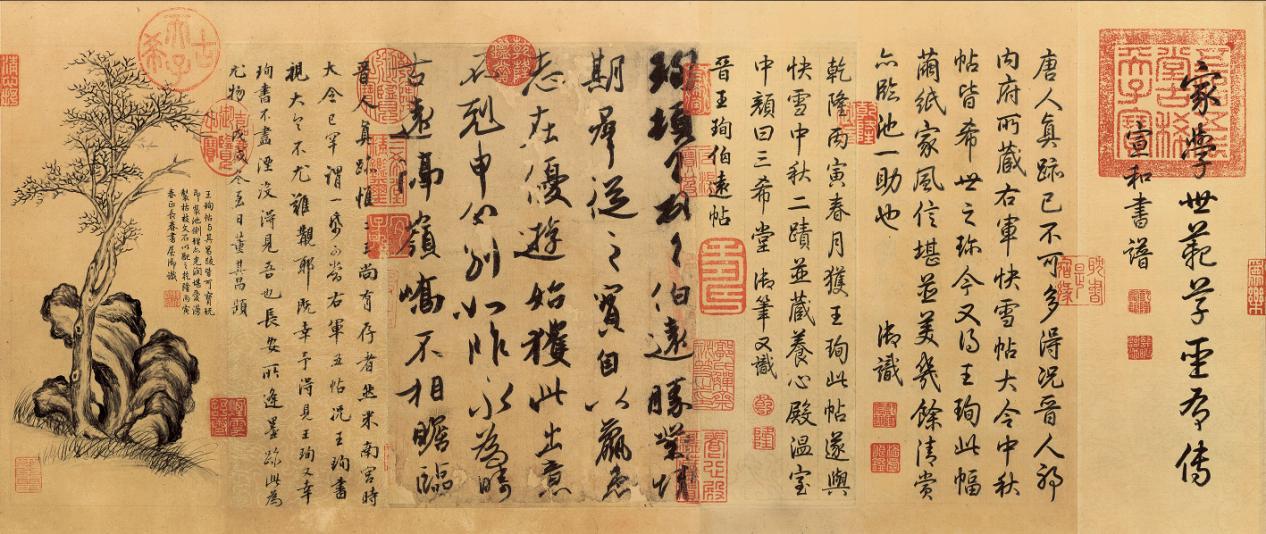 家學世範草聖有傳
宣和書譜
唐人真跡已不可多得況晉人耶
内府所藏右軍快雪帖大令中秋
帖皆希世之珍今又得王珣此幅
繭紙家風信堪並美幾餘清賞
亦臨池一助也 御識
乾隆丙寅春月獲王珣此帖遂與
快雪中秋二蹟並藏養心殿溫室
中顏曰三希堂 御筆又識
乾
隆
晉王珣伯遠帖
珣頓首頓首伯遠勝業情
期群從之寶自以羸患
志在優遊始獲此出意
不剋申分別如昨永為疇
古遠隔嶺嶠不相瞻臨
乾隆鑑賞
晉人真跡惟二王尚有存者然米南宮時
大令已罕謂一紙可當右軍五帖況王珣書
視大令不尤難覯耶既幸予得見王珣又幸
珣書不盡湮沒得見吾也長安所逢墨跡此為
尤物 戊戌冬至日董其昌題
王珣帖與其昌跋皆可寶玩
即裝池側理亦光潤堪愛漫
製枯枝文石以配之乾隆丙寅
春正長春書屋御識
古希天子